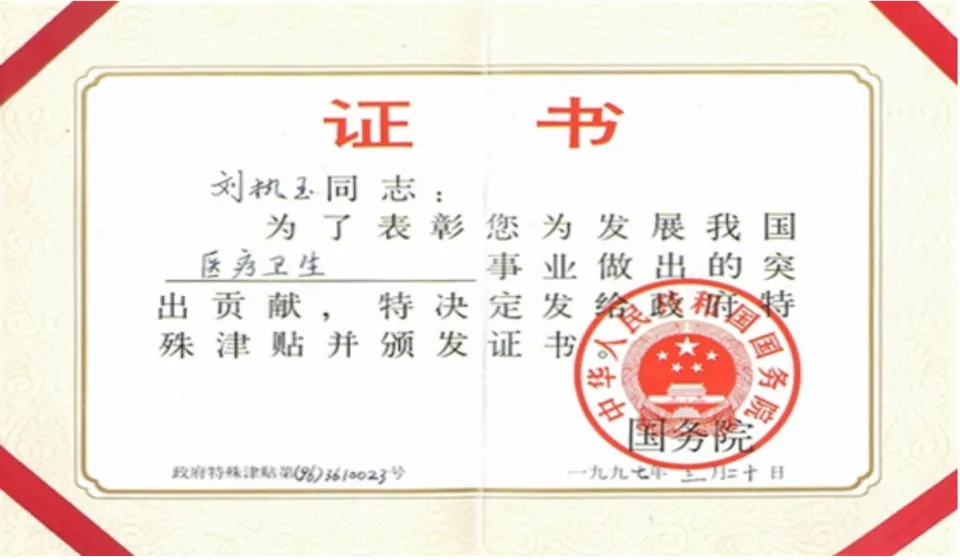 证书
刘执玉同志：
为了表彰您为发展我国
医疗卫生事业做出的突
出贡献，特决定发给政府特
殊津贴并颁发证书。
中华人民共和国国务院
国务院
政府特殊津贴第(96)3610023号
一九九七年三月二十日